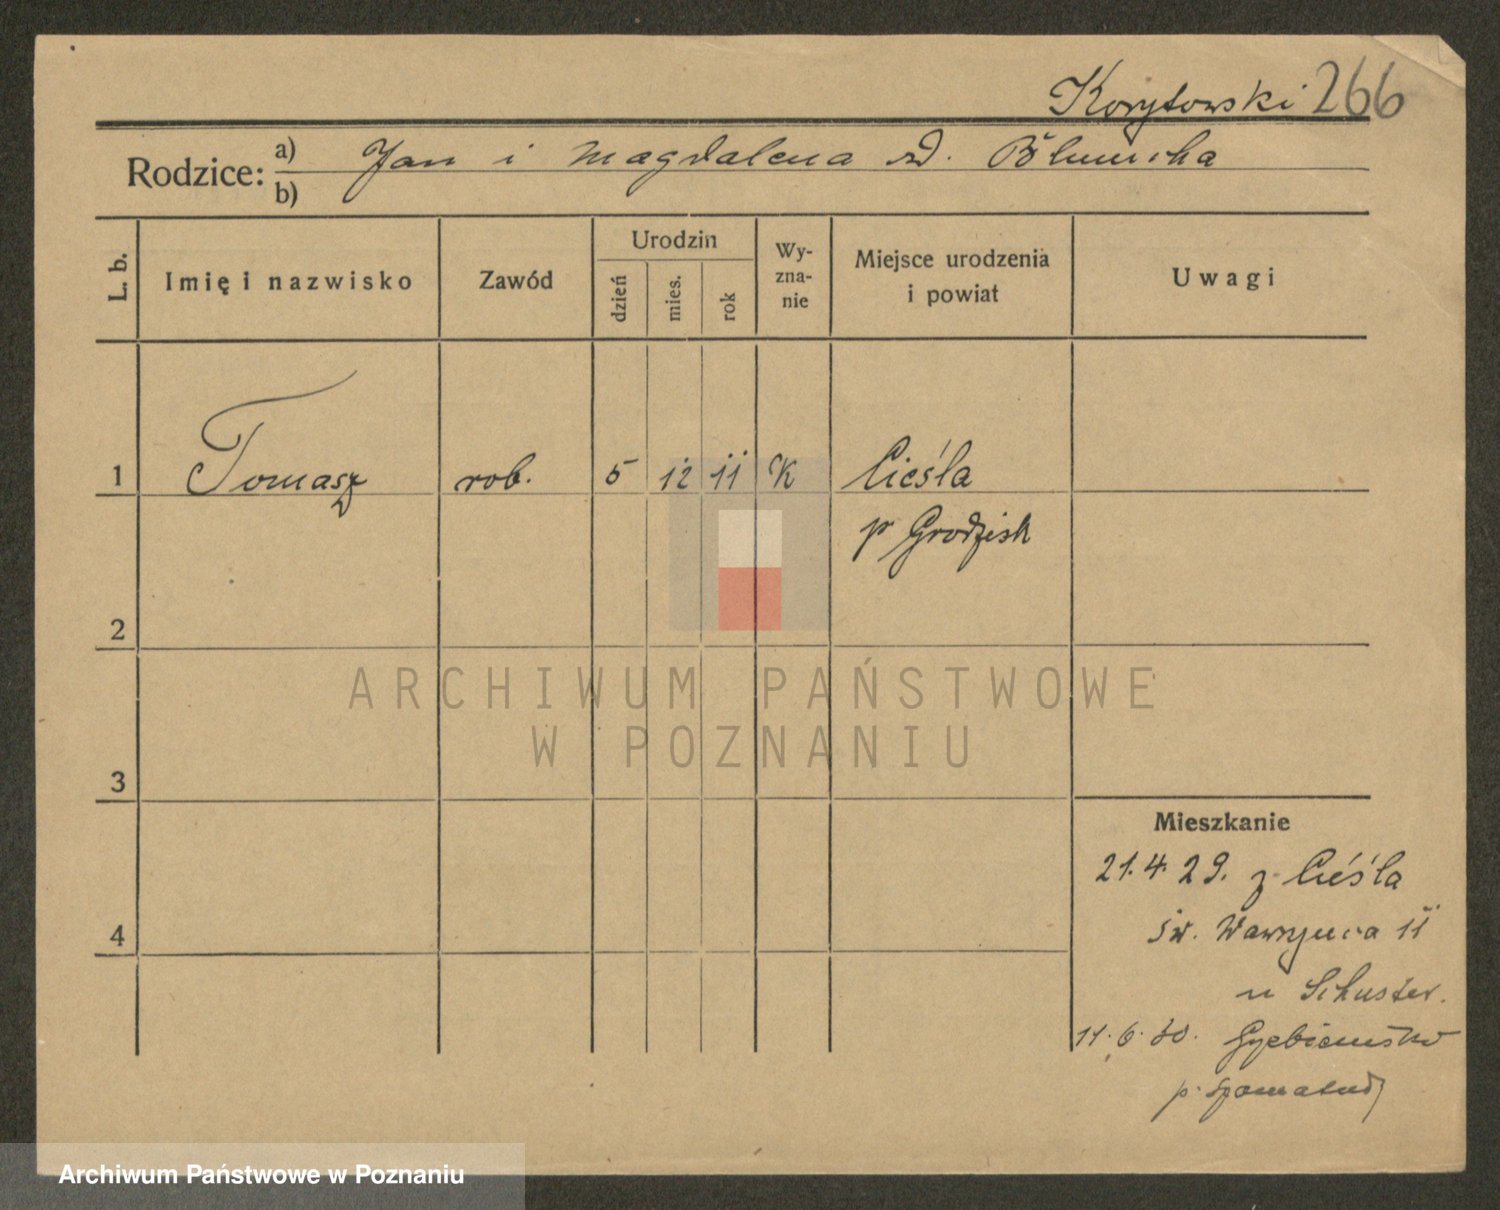 Korytowski 266
Rodzice: a) Jan i Magdalena
b)
L. b. Imię i nazwisko Zawód Urodzin dzień mies. rok Wy-zna-nie Miejsce urodzenia i powiat Uwagi
1 Tomasz rob. 5 12 11 K Cieśla
p Grodzisk
2
ARCHIWUM PAŃSTWOWE
W POZNANIU
3
Mieszkanie
21.4.29. z Cieśla
4
św. Wawrzyńca 11
u Schuster.
11.6.30.
p.
Archiwum Państwowe w Poznaniu